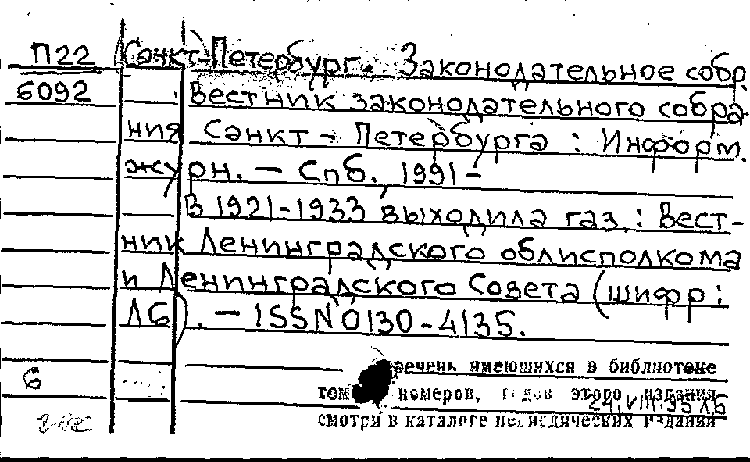 П22 Санкт-Петербург. Законодательное собр.
6092 Вестник законодательного собра-
ния Санкт-Петербурга : Информ.
журн. – Спб., 1991-
В 1921-1933 выходила газ.: Вест-
ник Ленинградского облисполкома
и Ленинградского Совета (шифр:
Λб). – ISSN 0130-4135.
речень имеющихся в библиотеке
6
том номеров, годов этого издания
24.VIII.95
смотри в каталоге периодических издания